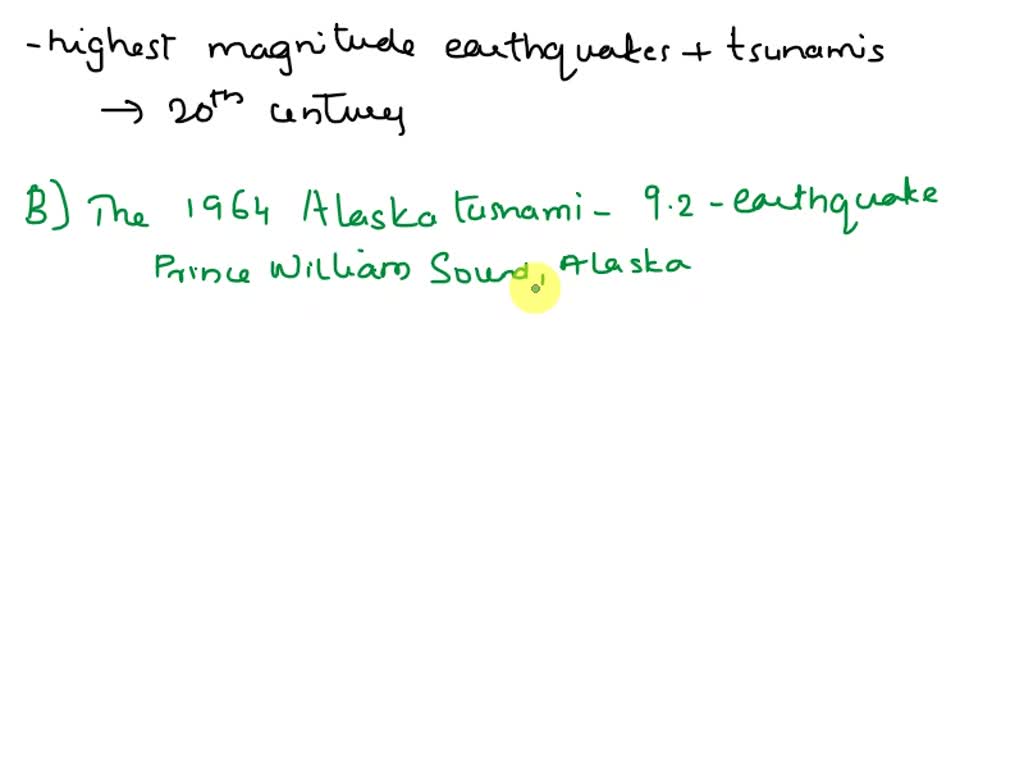 -highest magnitude earthquakes + tsunamis
→ 20th century
B) The 1964 Alaska tusnami - 9.2 - earthquake
Prince William Sound, Alaska